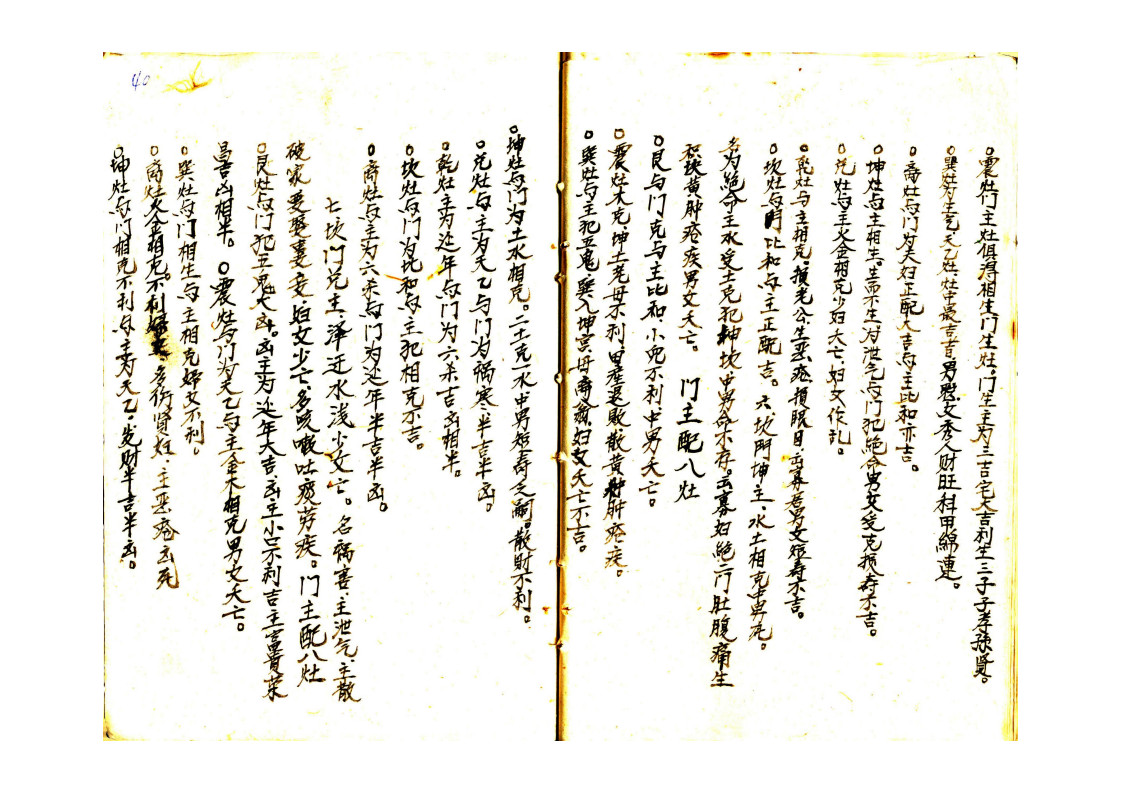 ○震灶门主灶俱得相生门生灶。门生主为三吉宅大吉利生三子子孝孙贤。
○巽灶为生气天乙灶。灶中最吉者男聪女秀人财旺科甲綿連。
○离灶与门为夫妇正配大吉与主比和亦吉。
○坤灶与主相生。生而不生为泄气与门犯絶命男女受克损寿不吉。
○兑灶与主火金相克少妇夭亡。妇女作乱。
○乾灶与主相克。损老公。生恶疮损眼目。出寡居男女短寿不吉。
○坎灶与門比和与主正配吉。六、坎門坤主、水土相克中男死。
名为絶命主水受土克犯坤坎中男命不存。出寡妇絶二门肚腹痛生
积块黄肿疮疾男女夭亡。 门主配八灶
○艮与门克与主比和、小儿不利、中男夭亡。
○震灶木克坤土老母不利田产退败散黄肿疮疾。
○巽灶与主犯五鬼、巽入坤宫、母离翁妇女夭亡不吉。
○坤灶与门为土水相克。二土克一水中男短寿乏嗣。散财不利。
○兑灶与主为天乙与门为祸害、半吉半凶。
○乾灶主为延年与门为六杀吉凶相半。
○坎灶与门为比和与主犯相克不吉。
○离灶与主为六杀与门为延年半吉半凶。
七坎门兑主、泽迁水浅少女亡。名祸害、主泄气、主散
破家 妻妾、妇女少亡、多咳嗽吐痰劳疾。门主配八灶
○艮灶与门犯五鬼大凶。凶主为延年大吉。凶主小口不利吉主富贵荣
昌吉凶相半。○震灶与门为天乙与主金木相克男女夭亡。
○巽灶与门相生与主相克妇女不利。
○离灶火金相克。不利 多伤贤妇、主恶疮凶死
○坤灶与门相克不利与主为天乙、发财半吉半凶。
40